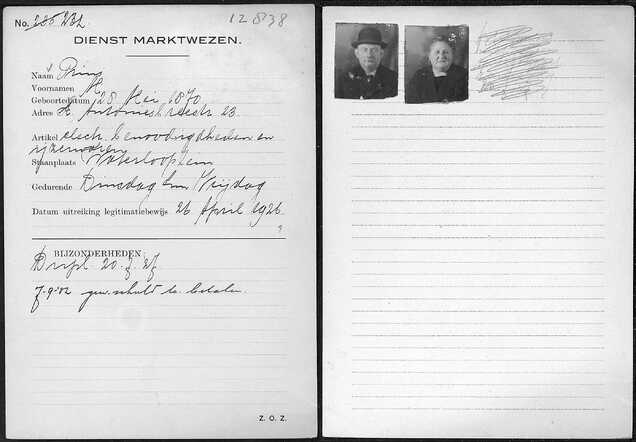 No. 285 232 12838
DIENST MARKTWEZEN.
Naam Prins
Voornamen M
Geboortedatum 28 Mei 1870
Adres St. Antoniesbreestr 23.
Artikel elect. benoodigdheden en
ijzerwaren
Staanplaats Waterlooplein
Gedurende Dinsdag t/m Vrijdag
Datum uitreiking legitimatiebewijs 26 April 1926.
BIJZONDERHEDEN:
20-7-27
schuld te betalen
Z. O. Z.